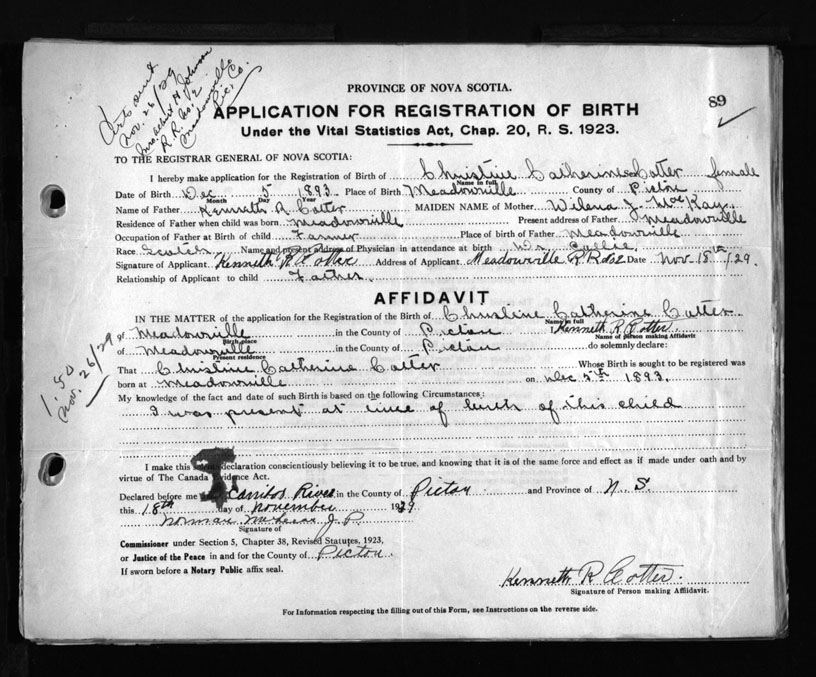 Nov. 26/29
R. R. No. 2
Meadowville
Pic. Co.
PROVINCE OF NOVA SCOTIA.
89
APPLICATION FOR REGISTRATION OF BIRTH
Under the Vital Statistics Act, Chap. 20, R. S. 1923.
TO THE REGISTRAR GENERAL OF NOVA SCOTIA:
I hereby make application for the Registration of Birth of Christine Catherine Cotter female
Name in full
Date of Birth Dec 5 1893 Place of Birth Meadowville County of Pictou
Month Day Year
Name of Father Kenneth R Cotter MAIDEN NAME of Mother Wilena J. McKay
Residence of Father when child was born Meadowville Present address of Father Meadowville
Occupation of Father at Birth of child Farmer Place of birth of Father Meadowville
Race Scotch Name and present address of Physician in attendance at birth Dr.
Signature of Applicant Kenneth R Cotter Address of Applicant Meadowville R R No 2 Date Nov 18th /29.
Relationship of Applicant to child Father
AFFIDAVIT
IN THE MATTER of the application for the Registration of the Birth of Christine Catherine Cotter
Name in full
of Meadowville in the County of Pictou I Kenneth R Cotter
Birth place Name of person making Affidavit
of Meadowville in the County of Pictou do solemnly declare:
Present residence
That Christine Catherine Cotter Whose Birth is sought to be registered was
born at Meadowville on Dec 5th 1893.
1.50
Nov. 26/29
My knowledge of the fact and date of such Birth is based on the following Circumstances:
I was present at time of birth of this child
I make this declaration conscientiously believing it to be true, and knowing that it is of the same force and effect as if made under oath and by
virtue of The Canada Evidence Act.
Declared before me Caribou River in the County of Pictou and Province of N. S.
this 18th day of November 1929
Norman J. P.
Signature of
Commissioner under Section 5, Chapter 38, Revised Statutes, 1923,
or Justice of the Peace in and for the County of Pictou.
If sworn before a Notary Public affix seal.
Kenneth R Cotter.
Signature of Person making Affidavit.
For Information respecting the filling out of this Form, see Instructions on the reverse side.